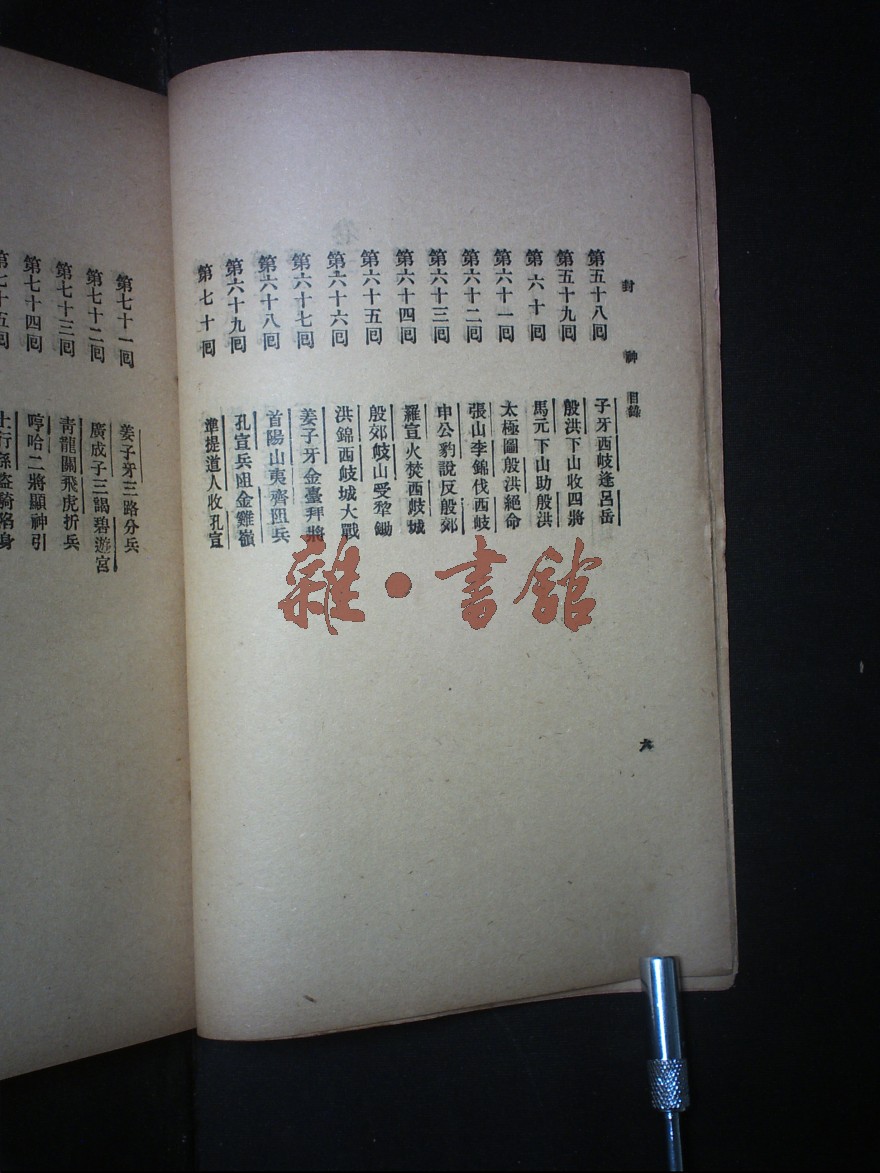 封神 目錄
第五十八回 子牙西岐逢呂岳
第五十九回 殷洪下山收四將
第六十回 馬元下山助殷洪
第六十一回 太極圖殷洪絕命
第六十二回 張山李錦伐西岐
第六十三回 申公豹說反殷郊
第六十四回 羅宣火焚西岐城
第六十五回 殷郊岐山受犂鋤
第六十六回 洪錦西岐城大戰
第六十七回 姜子牙金臺拜將
第六十八回 首陽山夷齊阻兵
第六十九回 孔宣兵阻金雞嶺
第七十回 準提道人收孔宣
六
第七十一回 姜子牙三路分兵
第七十二回 廣成子三謁碧遊宮
第七十三回 青龍關飛虎折兵
第七十四回 哼哈二將顯神引
第七十五回 土行孫盜騎陷身
雜·書館